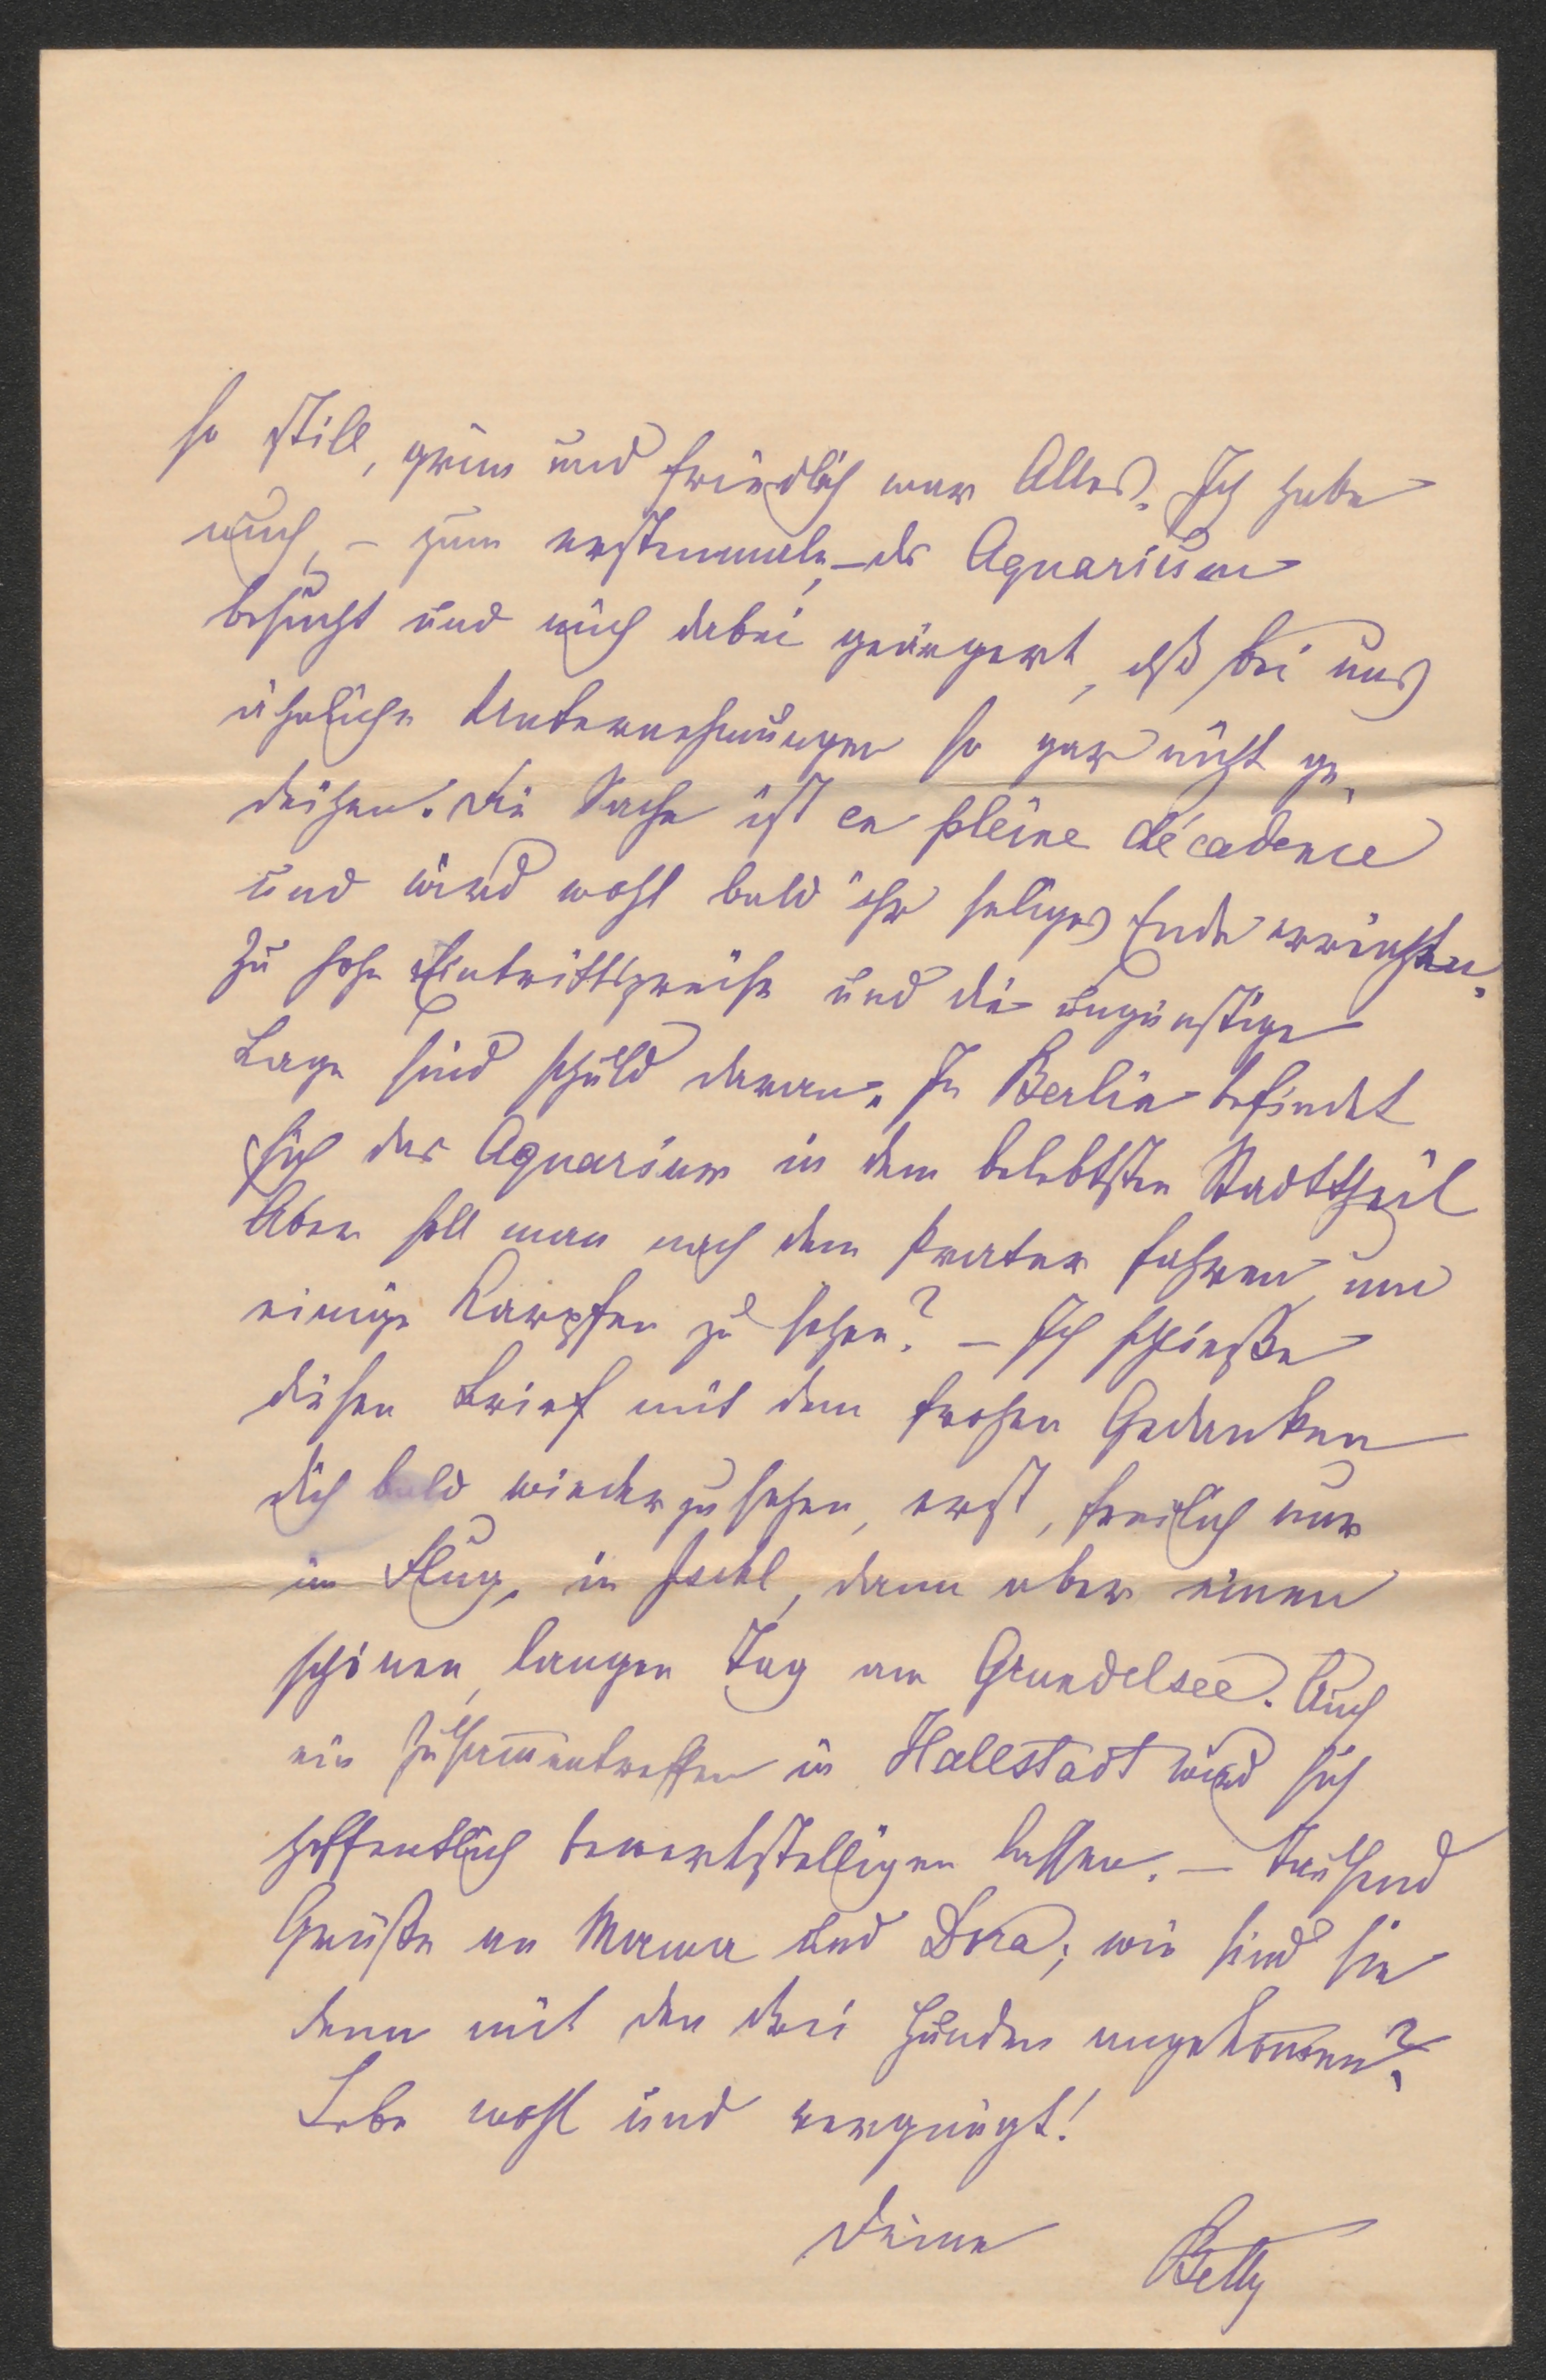 so still, grün und friedlich war Alles. Ich habe
auch, – zum erstenmale, – das Aquarium
besucht und mich dabei geärgert, dß bei uns
ähnliche Unternehmungen so gar nicht ge-
deihen. Die Sache ist en pleine décadence
und wird wohl bald ihr seliges Ende erreichen.
Zu hohe Eintrittspreise und die ungünstige
Lage sind schuld daran. In Berlin befindet
sich das Aquarium in dem belebtsten Stadttheil
Aber soll man nach dem Prater fahren um
einige Karpfen zu sehen? – Ich schließe
diesen Brief mit dem frohen Gedanken
dich bald wiederzusehen, erst, freilich nur
im Flug, in Ischl, dann aber einen
schönen, langen Tag am Grundelsee. Auch
ein Zusam̅entreffen in Hallstadt wird sich
hoffentlich bewerkstelligen lassen. – Tausend
Grüße an Mama und Dora; wie sind sie
denn mit den drei Hunden angekom̅en?
Lebe wohl und vergnügt!
Deine Betty